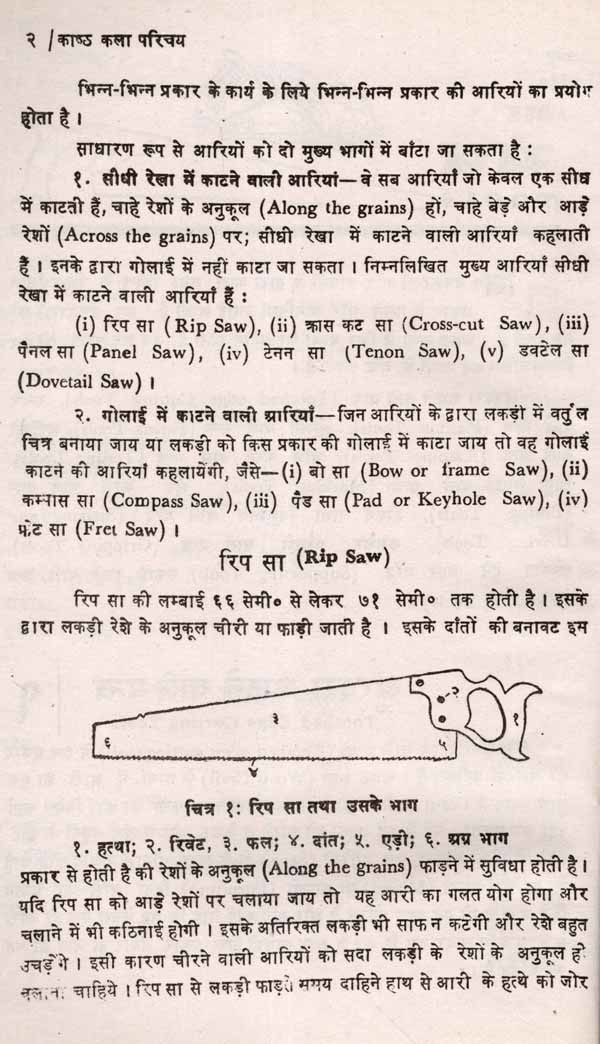 २ / काष्ठ कला परिचय
भिन्न-भिन्न प्रकार के कार्य के लिये भिन्न-भिन्न प्रकार की आरियों का प्रयोग
होता है ।
साधारण रूप से आरियों को दो मुख्य भागों में बाँटा जा सकता है :
१. सीधी रेखा में काटने वाली आरियां—वे सब आरियाँ जो केवल एक सीध
में काटती हैं, चाहे रेशों के अनुकूल (Along the grains) हों, चाहे बेड़े और आड़े
रेशों (Across the grains) पर; सीधी रेखा में काटने वाली आरियाँ कहलाती
हैं । इनके द्वारा गोलाई में नहीं काटा जा सकता । निम्नलिखित मुख्य आरियाँ सीधी
रेखा में काटने वाली आरियाँ हैं :
(i) रिप सा (Rip Saw), (ii) क्रास कट सा (Cross-cut Saw), (iii)
पैनल सा (Panel Saw), (iv) टेनन सा (Tenon Saw), (v) डवटेल सा
(Dovetail Saw) ।
२. गोलाई में काटने वाली आरियाँ—जिन आरियों के द्वारा लकड़ी में वर्तुल
चित्र बनाया जाय या लकड़ी को किस प्रकार की गोलाई में काटा जाय तो वह गोलाई
काटने की आरियां कहलायेंगी, जैसे—(i) बो सा (Bow or frame Saw), (ii)
कम्पास सा (Compass Saw), (iii) पैड सा (Pad or Keyhole Saw), (iv)
फ्रेट सा (Fret Saw) ।
रिप सा (Rip Saw)
रिप सा की लम्बाई ६६ सेमी० से लेकर ७१ सेमी० तक होती है । इसके
द्वारा लकड़ी रेशे के अनुकूल चीरी या फाड़ी जाती है । इसके दाँतों की बनावट इस
१
२
३
४
५
६
चित्र १: रिप सा तथा उसके भाग
१. हत्था; २. रिवेट, ३. फल; ४. दांत; ५. एड़ी; ६. अग्र भाग
प्रकार से होती है की रेशों के अनुकूल (Along the grains) फाड़ने में सुविधा होती है ।
यदि रिप सा को आड़े रेशों पर चलाया जाय तो यह आरी का गलत योग होगा और
चलाने में भी कठिनाई होगी । इसके अतिरिक्त लकड़ी भी साफ न कटेगी और रेशे बहुत
उचड़ेंगे । इसी कारण चीरने वाली आरियों को सदा लकड़ी के रेशों के अनुकूल ही
चलाना चाहिये । रिप सा से लकड़ी फाड़ते समय दाहिने हाथ से आरी के हत्थे को जोर